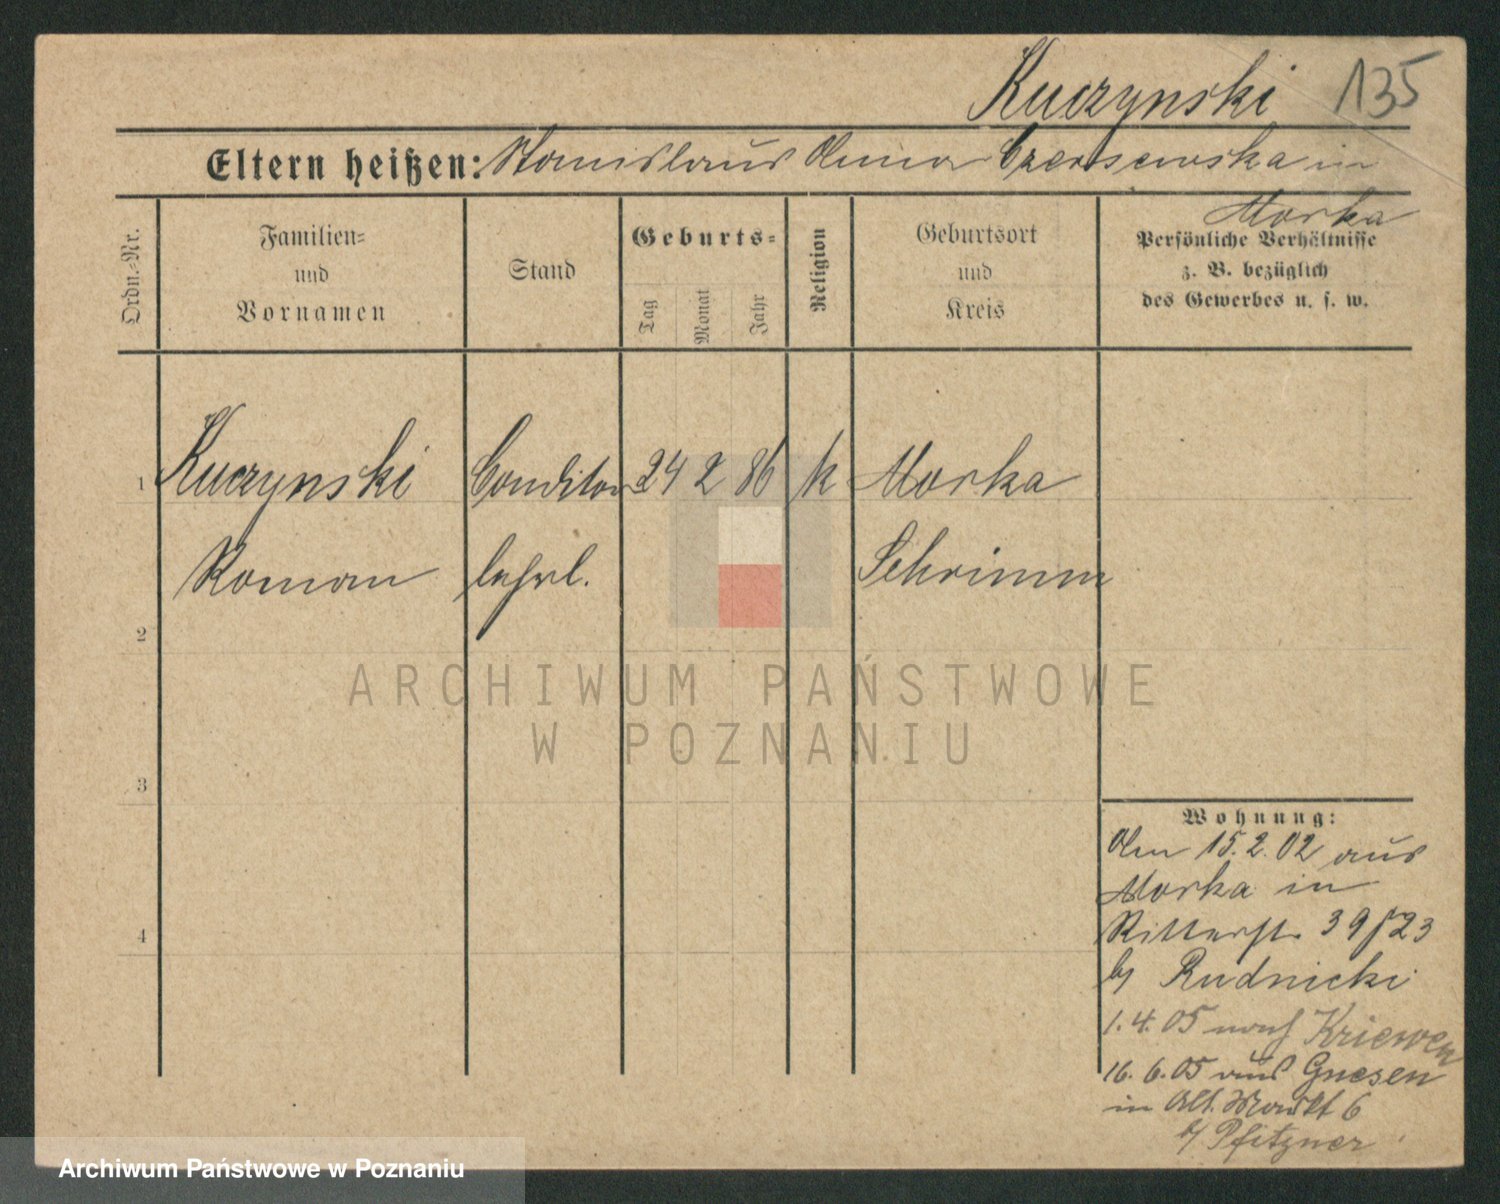 Kuczynski 135
Eltern heißen: Stanislaus Anna in
Morka
Ordn.-Nr.
Familien-
und
Vornamen
Stand
Geburts-
Tag
Monat
Jahr
Religion
Geburtsort
und
Kreis
Persönliche Verhältnisse
z. B. bezüglich
des Gewerbes u. s. w.
1 Kuczynski Conditor 24 2 86 k Morka
Roman lehrl. Schrimm
2
3
4
ARCHIWUM PAŃSTWOWE
W POZNANIU
Wohnung:
Am 15.2.02 aus
Morka in
Ritterst. 39/23
b/ Rudnicki
1.4.05 nach Kriewen
16.6.05 aus Gnesen
in Alt. Markt 6
b/ Pfitzner
Archiwum Państwowe w Poznaniu